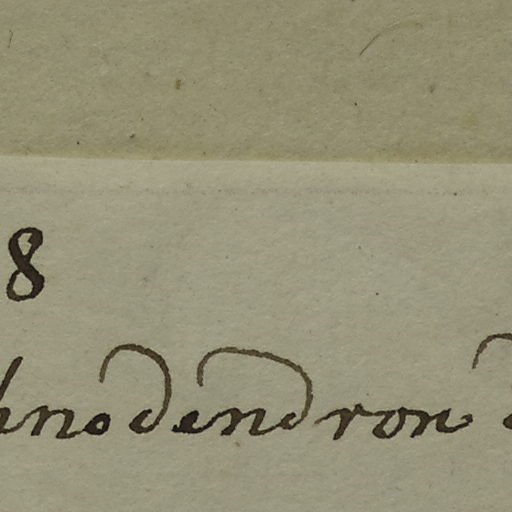 8
hnodendron